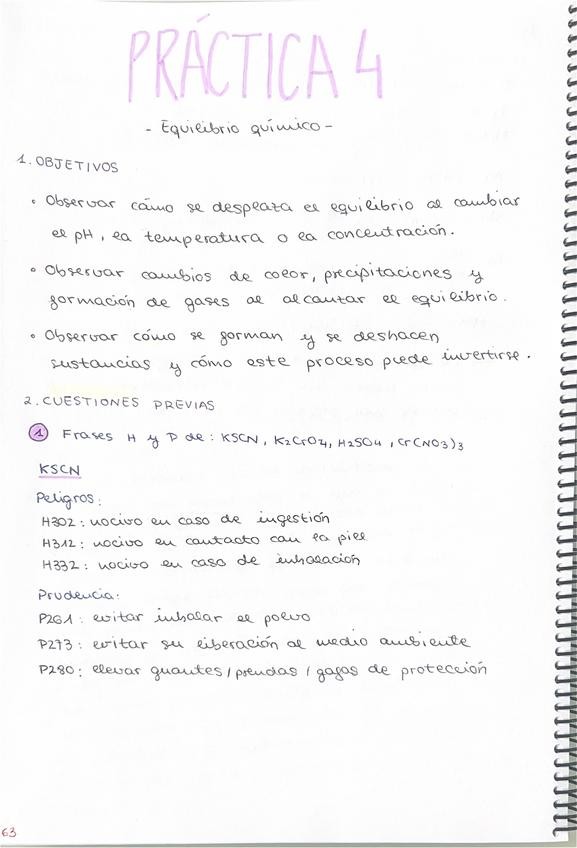 PRÁCTICA 4
- Equilibrio químico -
1. OBJETIVOS
• Observar cómo se desplaza el equilibrio al cambiar
el pH, la temperatura o la concentración.
• Observar cambios de color, precipitaciones y
formación de gases al alcantar el equilibrio.
• Observar cómo se forman y se deshacen
sustancias y cómo este proceso puede invertirse.
2. CUESTIONES PREVIAS
1 Frases H y P de: KSCN, K2CrO4, H2SO4, Cr(NO3)3
KSCN
Peligros:
H302: nocivo en caso de ingestión
H312: nocivo en contacto con la piel
H332: nocivo en caso de inhalación
Prudencia:
P261: evitar inhalar el polvo
P273: evitar su liberación al medio ambiente
P280: llevar guantes/prendas/gafas de protección
63